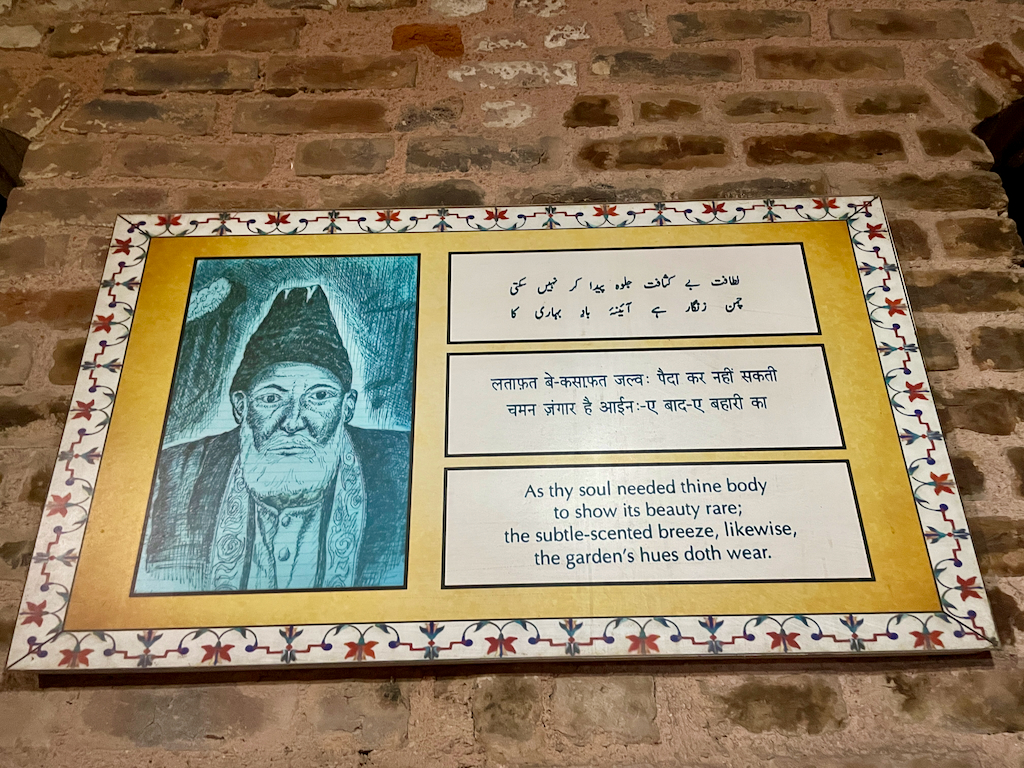 لطافت بے کثافت جلوہ پیدا کر نہیں سکتی
چمن زنگار ہے آئینۂ باد بہاری کا
लताफ़त बे-कसाफ़त जल्वः पैदा कर नहीं सकती
चमन ज़ंगार है आईनः-ए बाद-ए बहारी का
As thy soul needed thine body
to show its beauty rare;
the subtle-scented breeze, likewise,
the garden's hues doth wear.